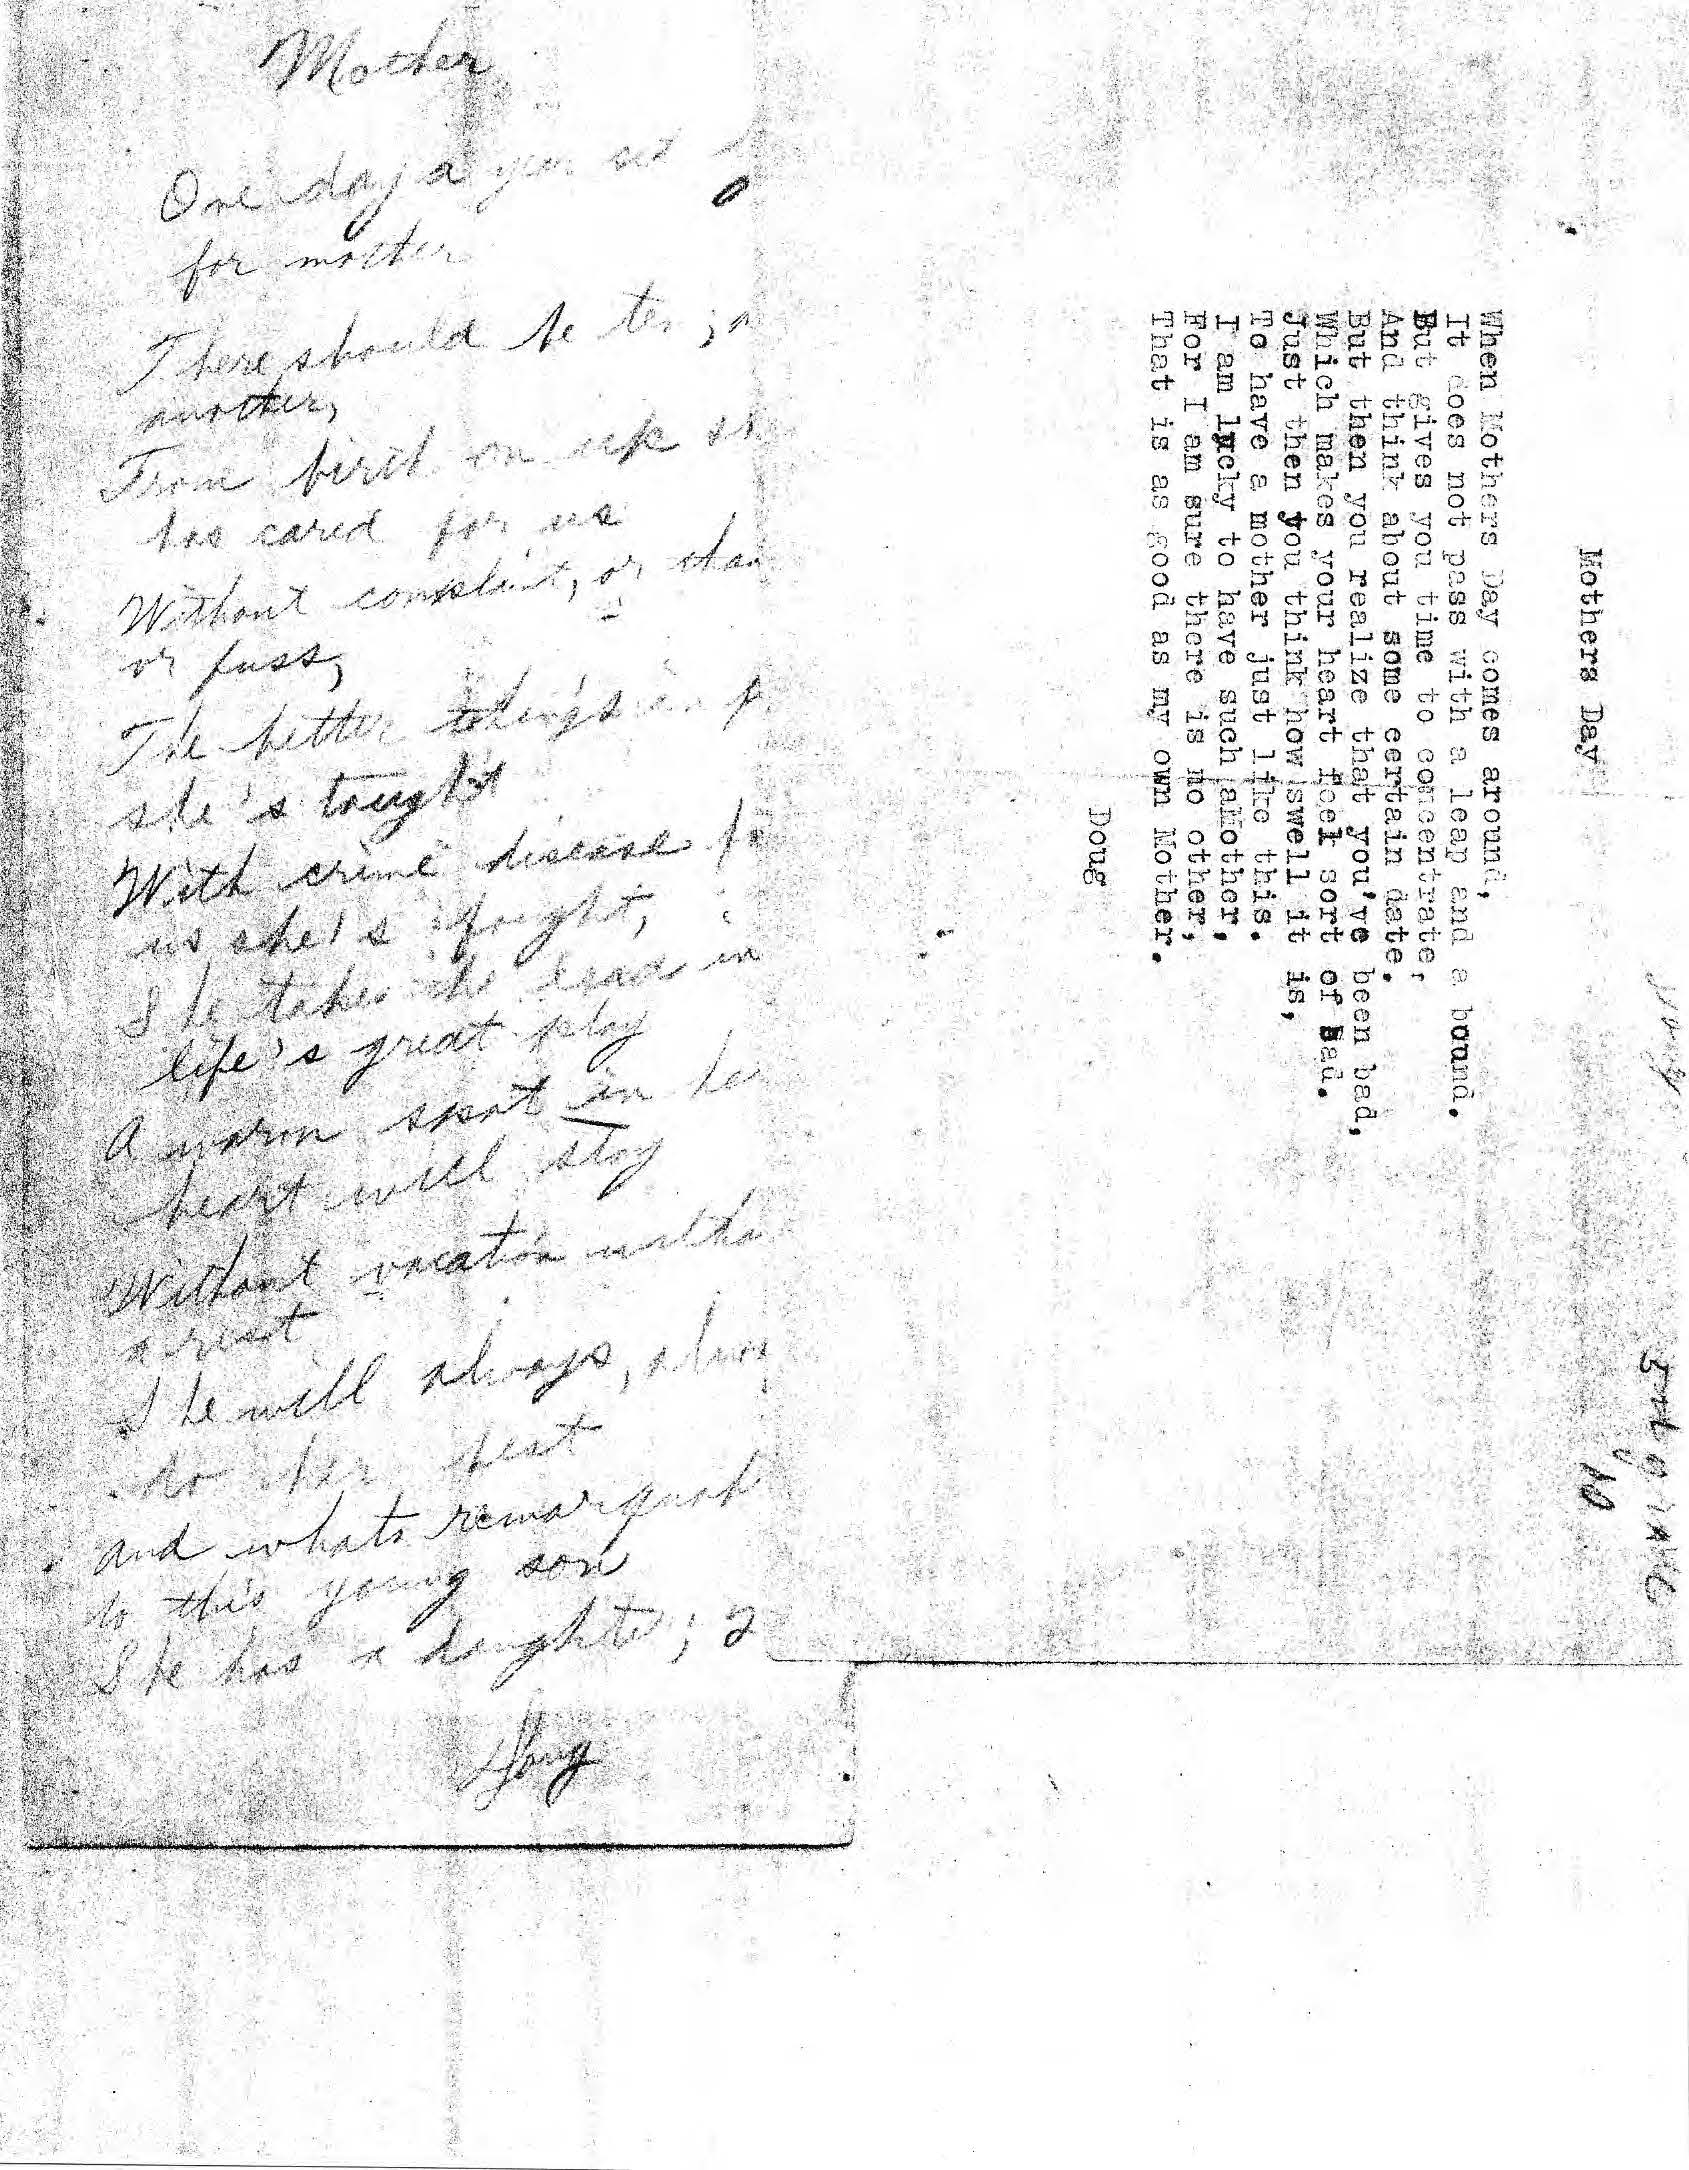 Mother
One day a year set
for mother
There should be ten,
another,
From birth on up she
has cared for us
Without complaint, or
or fuss,
The better things in
she's tought
With crime disease for
us she's fought,
She takes the lead in
life's great play
A warm spot in her
heart will stay
Without vacation witho
a rest
She will always, alway
do her best
and whats remarquab
to this young son
She has a daughter; 2
Doug
Mothers Day
When Mothers Day comes around,
It does not pass with a leap and a bound.
But gives you time to concentrate,
And think about some certain date.
But then you realize that you've been bad,
Which makes your heart feel sort of sad.
Just then you think how swell it is,
To have a mother just like this.
I am lucky to have such aMother,
For I am sure there is no other,
That is as good as my own Mother.
Doug